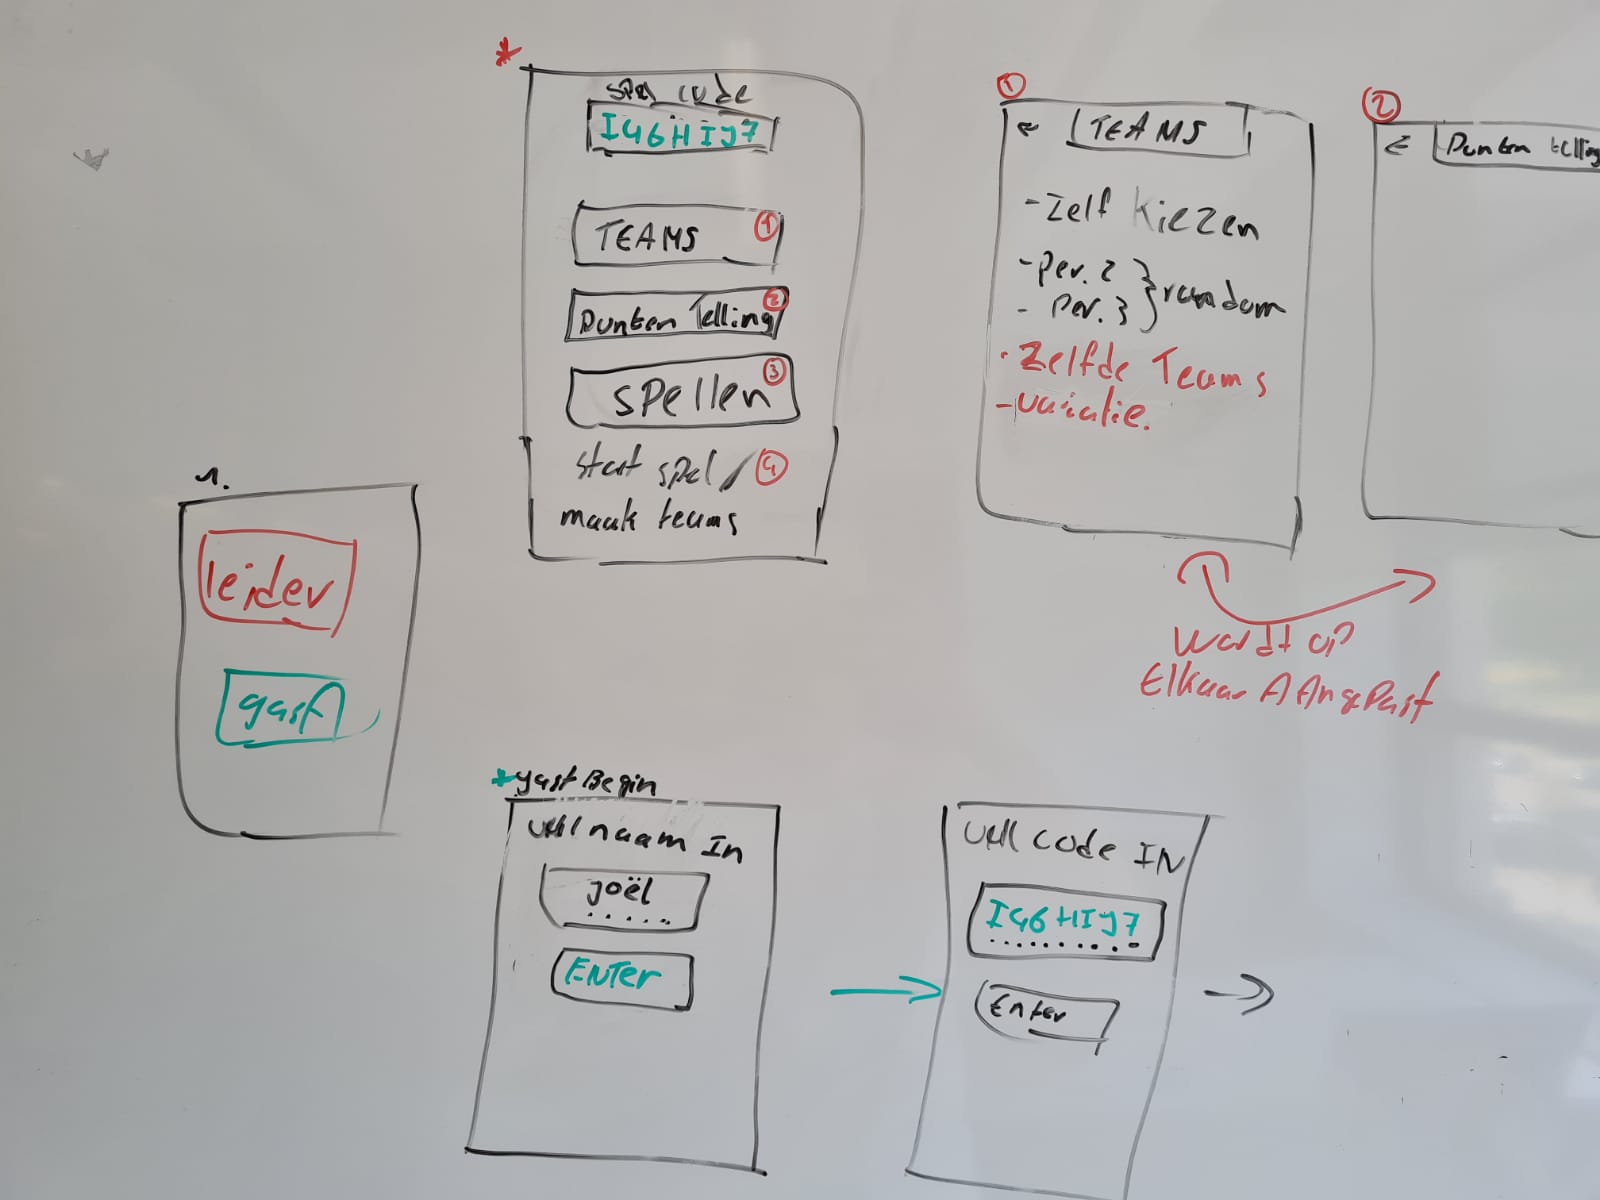 *
spel code
I46HIJ7
TEAMS 1
Punten Telling 2
SPellen 3
start spel / 4
maak teams
1
← TEAMS
- Zelf Kiezen
- per. 2 } random
- per. 3
· Zelfde Teams
- variatie.
2
← Punten telling
wordt op
Elkaar AAngePast
1.
leider
gast
* gast Begin
vul naam In
joël
.....
ENTer
vul code IN
I46HIJ7
.........
Enter